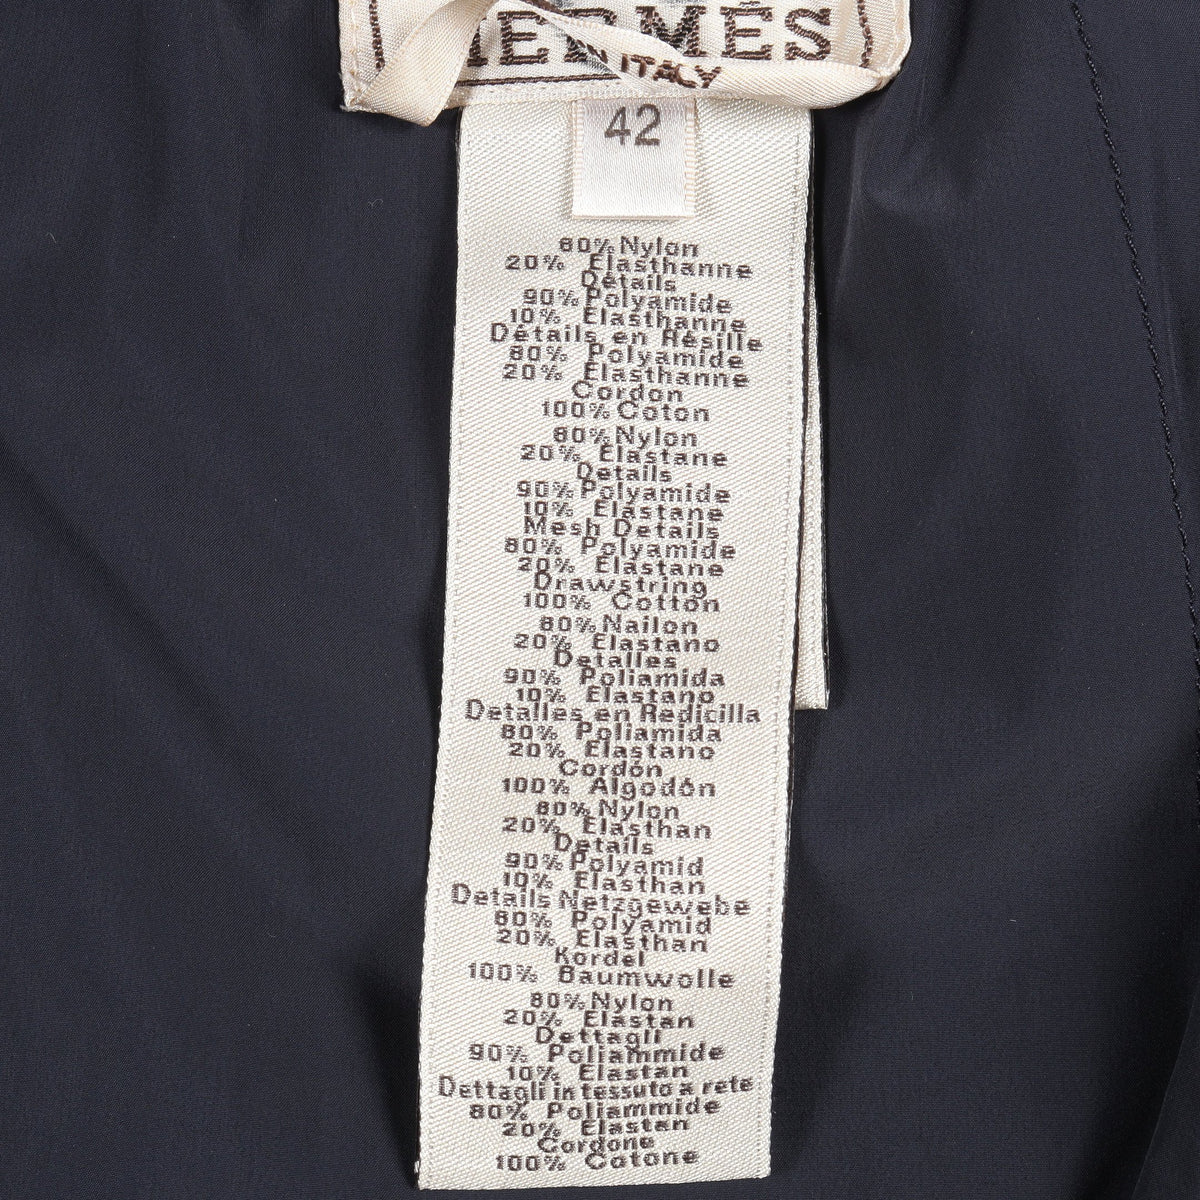 HERMÈS
ITALY
42
80% Nylon
20% Elasthanne
Détails
90% Polyamide
10% Elasthanne
Détails en Résille
80% Polyamide
20% Elasthanne
Cordon
100% Coton
80% Nylon
20% Elastane
Details
90% Polyamide
10% Elastane
Mesh Details
80% Polyamide
20% Elastane
Drawstring
100% Cotton
80% Nailon
20% Elastano
Detalles
90% Poliamida
10% Elastano
Detalles en Redicilla
80% Poliamida
20% Elastano
Cordón
100% Algodón
80% Nylon
20% Elasthan
Details
90% Polyamid
10% Elasthan
Details Netzgewebe
80% Polyamid
20% Elasthan
Kordel
100% Baumwolle
80% Nylon
20% Elastan
Dettagli
90% Poliammide
10% Elastan
Dettagli in tessuto a rete
80% Poliammide
20% Elastan
Cordone
100% Cotone